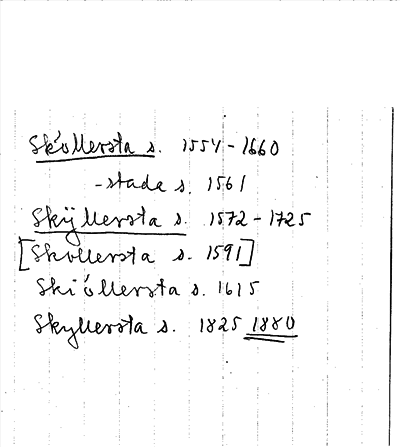 Sköllersta s. 1554-1660
-stada s. 1561
Skÿllersta s. 1572-1725
[Skollersta s. 1591]
Skiöllersta s. 1615
Skyllersta s. 1825 1880